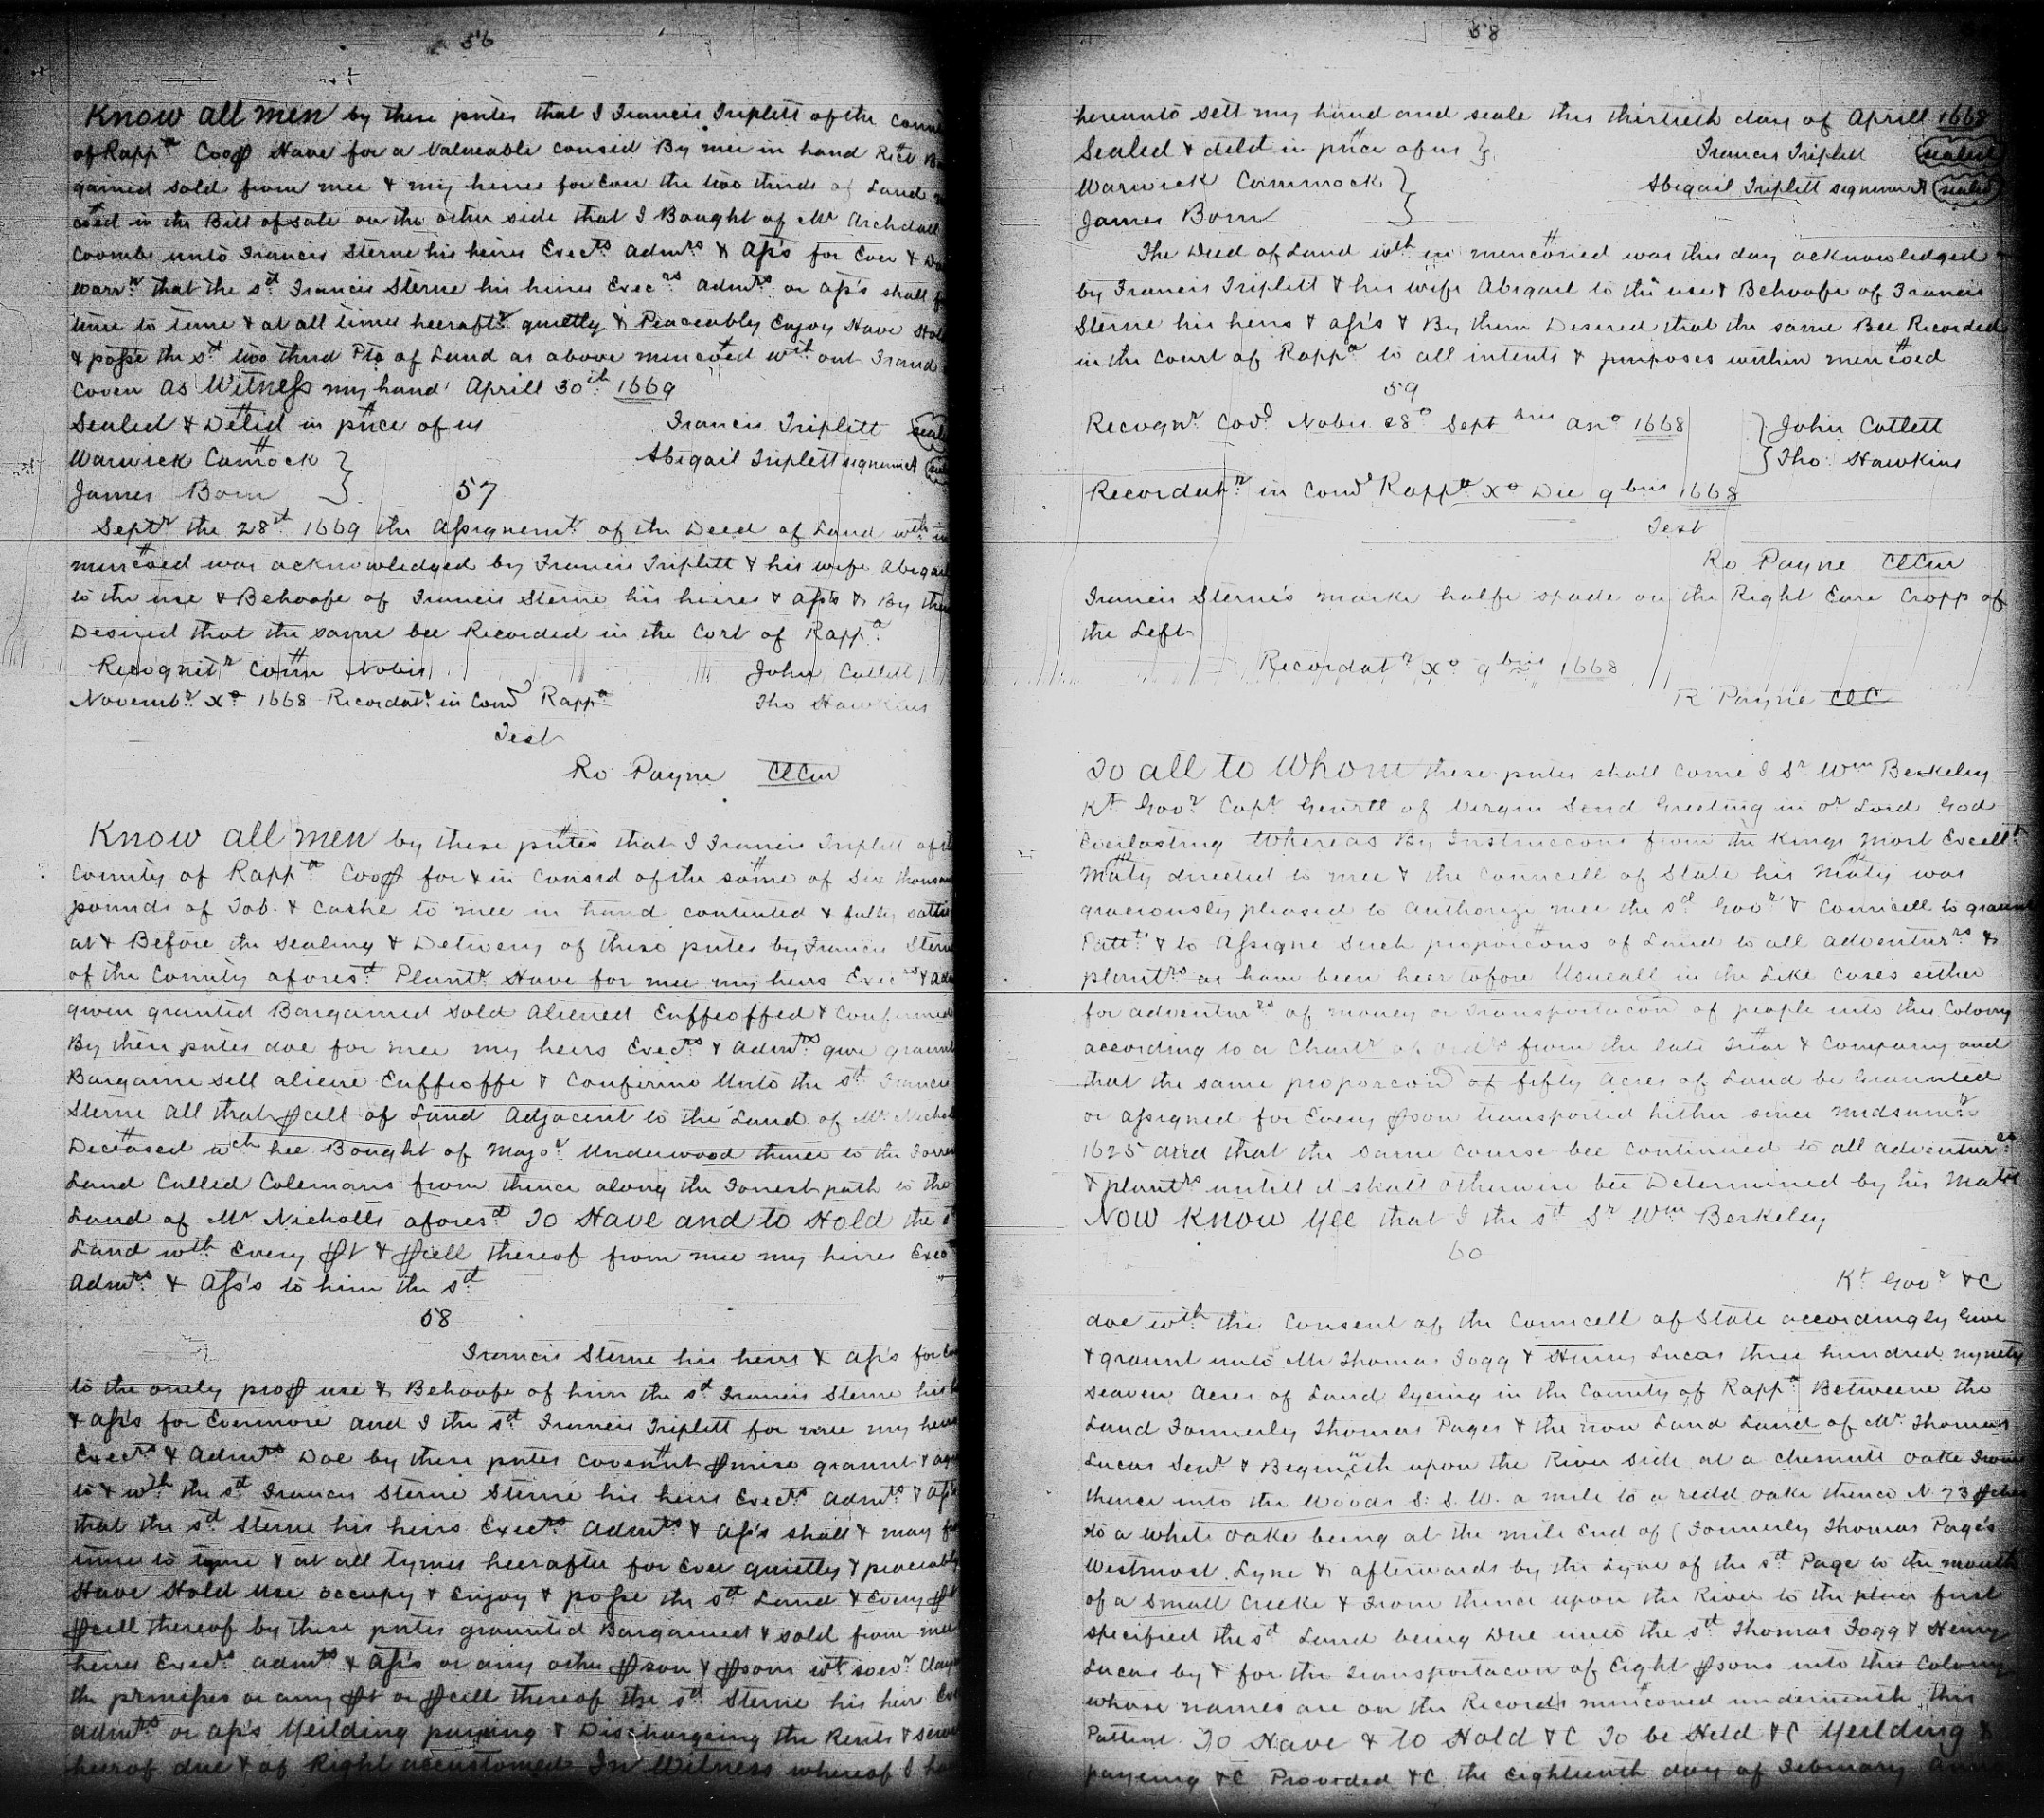 56
Know all men by these pntes that I Francis Triplett of the
of Rappa Coog Have for a Valueable consid By mee in hand Recd
gained sold from mee & my heires for Ever the two thirds of Land
in the Bill of Sale on the other side that I Bought of Mr Archdall
Coombe unto Francis Sterne his heires Execrs Admrs & Ass's for Ever &
Warrt that the sd Francis Sterne his heires Execrs Admrs or Ass's shall
time to time & at all times heeraftr quietly & Peaceably Enjoy Have
& posse the sd two third Pts of Land as above mencoed wthout Fraud
Coven As Witness my hand Aprill 30th 1669
Sealed & Delid in pnce of us Francis Triplett
Warwick Camock } Abigail Triplett signum A
James Born }
57
Septr the 28th 1669 the Assignemt of the Deed of Land wthin
mencoed was acknowledged by Francis Triplett & his wife
to the use & Behoofe of Francis Sterne his heires & Ass's & By
Desired that the same bee Recorded in the Cort of Rappa
Recognitr Com Nobis John Catlett
Novembr Xo 1668 Recordatr in Comd Rappa Tho Hawkins
Test
Ro Payne ClCur
Know all men by these pntes that I Francis Triplett of
County of Rappa Coog for & in Consid of the some of Six
pounds of Tob. & Caske to mee in hand contented & fully
at & Before the Sealing & Delivery of these pntes by Francis
of the County aforesd Plantr Have for mee my heirs Execrs &
given granted Bargained Sold Aliened Enffeoffed &
By these pntes doe for mee my heirs Execrs & Admrs give
Bargaine Sell aliene Enffeoffe & Confirme Unto the sd Francis
Sterne all that pcell of Land Adjacent to the Land of Mr
Deceased wch hee Bought of Major Underwood thence to the
Land Called Colemans from thence along the Forrest path to the
Land of Mr Nicholls aforesd To Have and to Hold the
Land wth Every pt & pcell thereof from mee my heires
Admrs & Ass's to him the sd
58
Francis Sterne his heirs & Ass's for
to the onely prop use & Behoofe of him the sd Francis Sterne his
& Ass's for Evermore and I the sd Francis Triplett for mee my
Execrs & Admrs Doe by these pntes covennt pmise graunt &
to & wth the sd Francis Sterne Sterne his heirs Execrs Admrs &
that the sd Sterne his heirs Execrs Admrs & Ass's shall & may
time to tyme & at all tymes heerafter for Ever quietly &
Have Hold Use occupy & Enjoy & posse the sd Land & Every
pcell thereof by these pntes graunted Bargained & sold from
heires Execrs Admrs & Ass's or any other pson & psons wt soevr
the premisses or any pt or pcell thereof the sd Sterne his heirs
Admrs or Ass's Yeilding paying & Dischargeing the Rents &
heerof due & of Right accustomed In Witness whereof I
58
hereunto sett my hand and seale this thirtieth day of Aprill 1668
Sealed & deld in pnce of us } Francis Triplett sealed
Warwick Cammock } Abigail Triplett signum A sealed
James Born }
The Deed of Land wthin menconed was this day acknowledged
by Francis Triplett & his wife Abigail to the use & Behoofe of Francis
Sterne his heirs & Ass's & By them Desired that the same Bee Recorded
in the Court of Rappa to all intents & purposes within mencoed
59
Recognr Cod Nobis 28o Septbris Ano 1668 } John Catlett
} Tho: Hawkins
Recordatr in Comd Rappa Xo Die 9bris 1668
Test
Ro Payne ClCur
Francis Sterne's marke halfe spade on the Right Eare Cropp of
the Left
Recordatr Xo 9bris 1668
R Payne ClC
To all to Whom these pntes shall come I Sr Wm Berkeley
Kt Govr Capt Genrll of Virgin Send Greeting in or Lord God
Everlasting Whereas By Instruccons from the Kings Most Excellt
Maty directed to mee & the Councell of State his Maty was
graciously pleased to authorize mee the sd Govr & Councell to graunt
Patts & to Assigne Such proporcons of Land to all adventurrs &
plantrs as have been heertofore Useuall in the Like Cases either
for adventurrs of money or Transportacon of people into this Colony
according to a Chartr of Ordrs from the late Trear & Company and
that the same proporcon of fifty Acres of Land be Graunted
or assigned for Every pson transported hither since Midsumr
1625 And that the same Course bee Continued to all adventurrs
& plantrs untill it shall otherwise bee Determined by his Matie
Now Know Yee that I the sd Sr Wm Berkeley
60
Kt Govr &C
doe wth the Consent of the Councell of State accordingly Give
& graunt unto Mr Thomas Fogg & Henry Lucas three hundred nynety
seaven Acres of Land lyeing in the County of Rappa Betweene the
Land Formerly Thomas Pages & the now Land Land of Mr Thomas
Lucas Senr & Beginneth upon the River Side at a Chesnutt oake From
thence into the Woods S. S. W. a mile to a redd oake thence N. 73
to a white oake being at the mile End of (Formerly Thomas Page's
Westmost Lyne & afterwards by the Lyne of the sd Page to the mouth
of a Small Creeke & From thence upon the River to the place first
specified the sd Land being Due unto the sd Thomas Fogg & Henry
Lucas by & for the Transportacon of Eight psons into this Colony
whose names are on the Records menconed underneath this
Pattent To Have & to Hold &C To be Held &C Yeilding &
payeing &C Provided &C the Eighteenth day of February